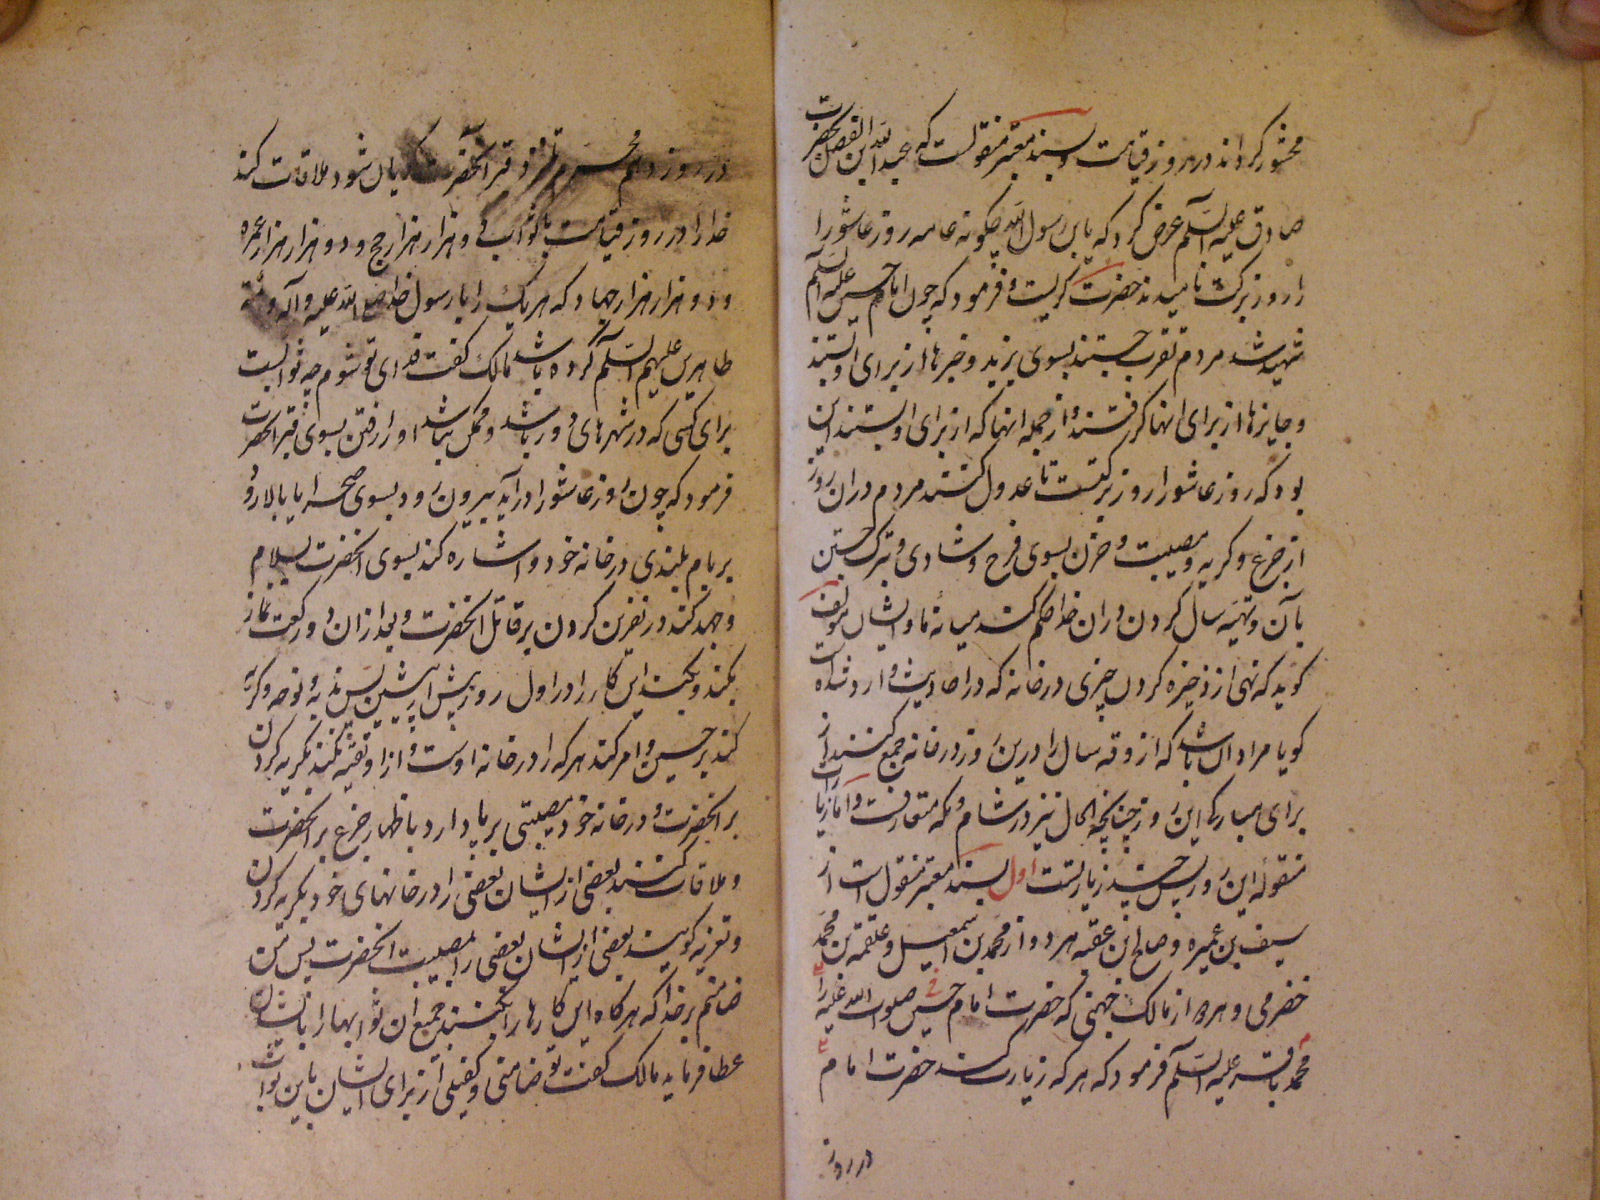 محشور کرداند در روز قیامت و بسند معتبر منقولست که عبد الله ابن الفضل بحضرت
صادق علیه السلم عرض کرد که یا بن رسول الله چکونه عامه روز عاشورا
را روز برکت نامیدند حضرت کریست و فرمود که چون امام حسین علیه السلم
شهید شد مردم تقرب جستند بسوی یزید و خبرها از برای او بستند
و جایزها از برای انها کرفتند و از جمله انها که از برای او بستند این
بود که روز عاشورا روز برکتست تا عدول کنند مردم دران روز
از جزع و کریه و مصیبت و حزن بسوی فرح و شادی و تبرک جستن
بآن و تهیه سال کردن دران خدا حکم کند میانه ما و ایشان مؤلف
کوید که نهی از ذخیره کردن چیزی در خانه که در احادیث وارد شده است
کویا مراد ان باشد که ازوقه سال را درین روز در خانه جمع کنند از
برای مبارکی این روز چنانچه الحال نیز در شام و مکه متعارفست و اما زیارات
منقوله این روز پس چند زیارتست اول بسند معتبر منقول است از
سیف بن عمیره و صالح ابن عقبه هر دو از محمد بن اسمعیل و علقمة بن محمد
حضرمی و هر دو از مالک جهنی که حضرت امام حسین صلوات الله علیه را
محمد باقر علیه السلم فرمود که هر که زیارت کند حضرت امام
در روز
در روز دهم محرم تا نزد قبر آنحضرت کریان شود ملاقات کند
خدا را در روز قیامت با ثواب دو هزار هزار حج و دو هزار هزار عمره
و دو هزار هزار جهاد که هر یک را با رسول خدا صلی الله علیه و آله و ائمه
طاهرین علیهم السلم کرده باشد مالک کفت فدای تو شوم چه ثوابست
برای کسی که در شهرهای دور باشد و ممکن نباشد او را رفتن بسوی قبر انحضرت
فرمود که چون روز عاشورا درآید بیرون رود بسوی صحرا یا بالا رود
بر بام بلندی در خانه خود و اشاره کند بسوی انحضرت بسلام
و جهد کند در نفرین کردن بر قاتل انحضرت و بعد ازان دو رکعت نماز
بکند و بکند این کار را در اول روز پیش از پیشین پس ندبه و نوحه و کریه
کند بر حسین و امر کند هر که را در خانه اوست و ازو تقیه نکند بکریه کردن
بر انحضرت و در خانه خود مصیبتی بر پا دارد باظهار جزع بر انحضرت
و ملاقات کنند بعضی از ایشان بعضی را در خانهای خود بکریه کردن
و تعزیه کویند بعضی از ایشان بعضی را بمصیبت انحضرت پس من
ضامنم بر خدا که هرکاه این کارها را بکنند جمیع ان ثوابها را بایشان
عطا فرماید مالک کفت تو ضامنی و کفیلی از برای ایشان باین ثواب